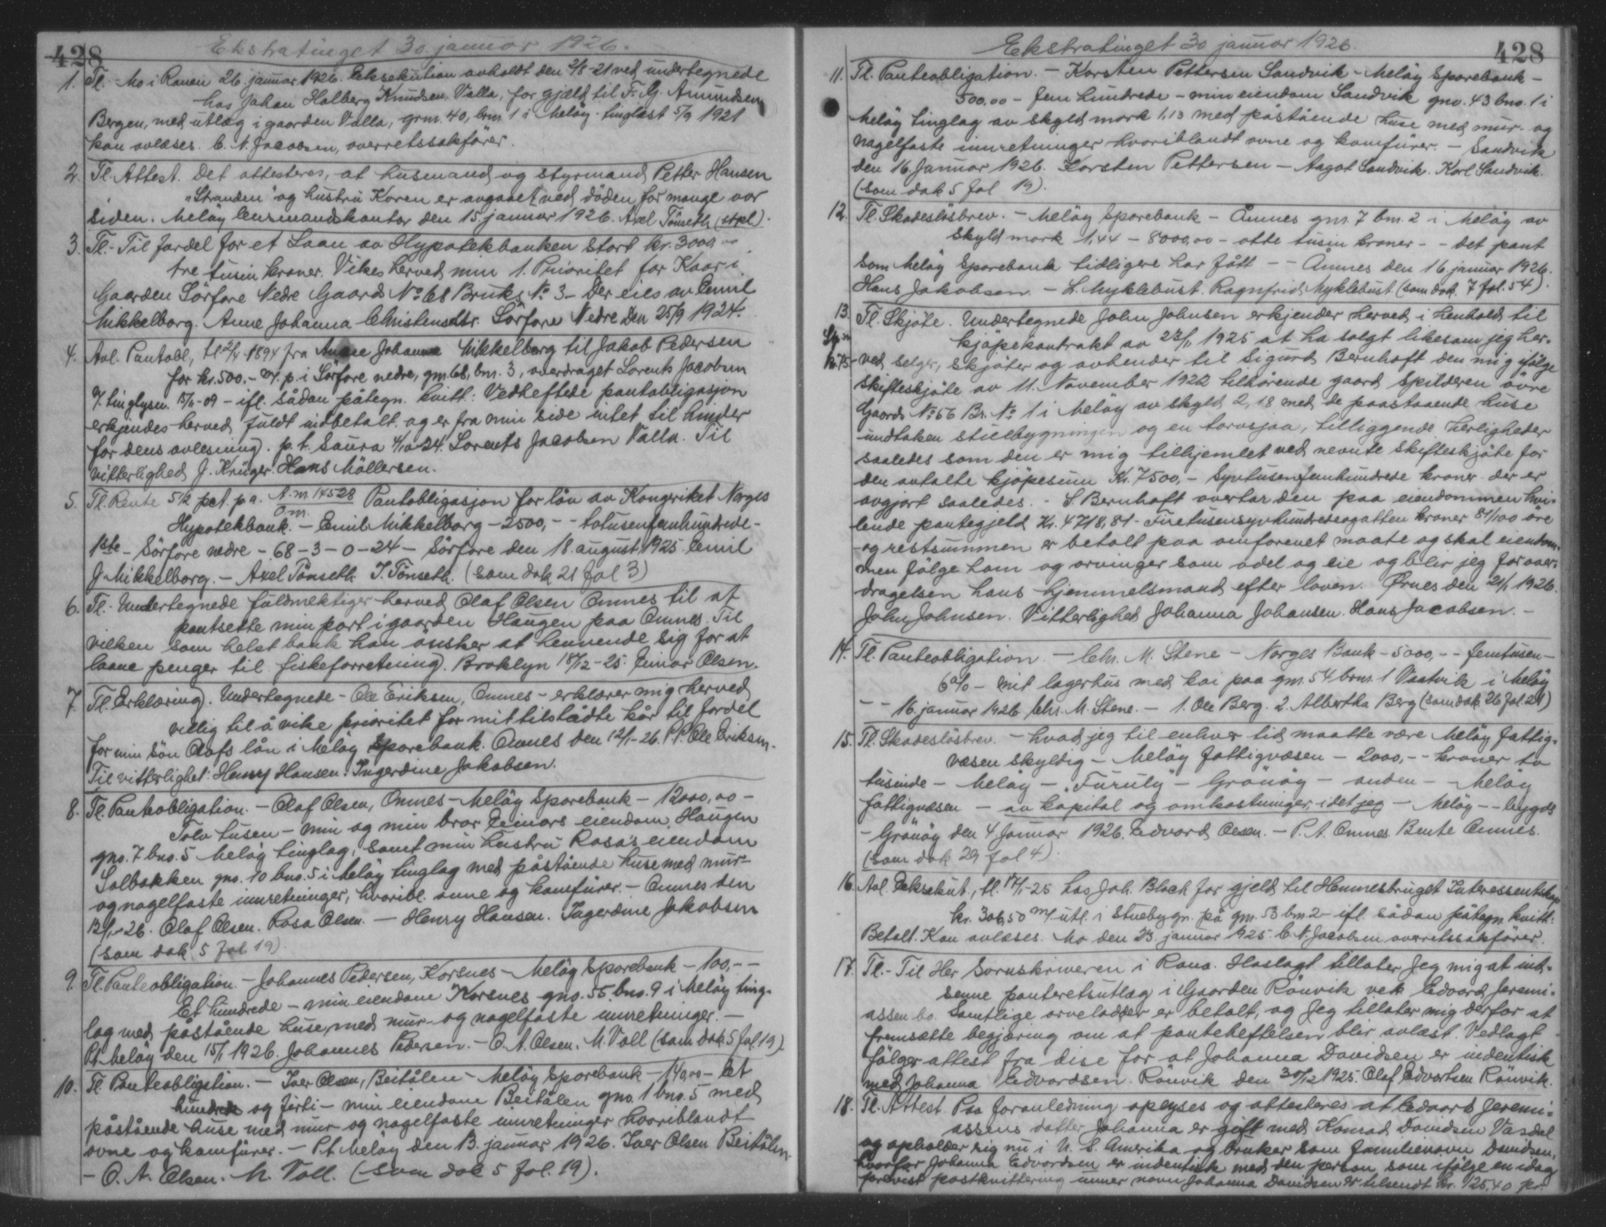 428
Ekstratinget 30 januar 1926.
1. Tl. - Mo i Ranen 26. januar 1926. Eksekution avholdt den 2/8-21 ved undertegnede
hos Johan Halberg Knudsen Valla, for gjæld til F. G. Amundsen
Bergen, med utlæg i gaarden Valla, grm. 40, brm. 1 i Meløy - tinglæst 5/9 1921
kan avlæses. C. N. Jacobsen, overretssakfører.
2. Tl. Attest. Det attesteres, at husmand og styrmand Petter Hansen
"Stranden" og hustru Karen er avgaaet ved døden for mange aar
siden. Meløy lensmandskontor den 15 januar 1926. Axel Tönseth (stpl).
3. Tl. - Til fordel for et Laan av Hypotekbanken stort kr. 3000
tre tusin kroner. Vikes herved min 1. Prioritet for Kaar i
Gaarden Sörfore Nedre Gaards No 68 Bruks No 3 - Der eies av Emil
Mikkelborg. Anne Johanna Christensdtr. Sörfore Nedre Den 25/9 1924.
4. Avl. Pantobl, tl 2/4 1894 fra Johanna Mikkelborg til Jakob Pedersen
for kr. 500.- m/. p. i Sörfore nedre, gm 68, bm. 3, overdraget Lorents Jacobsen
v/. tinglysn. 15/6-09 - ifl. sådan påtegn. kvitt: Vedheftede pantobligasjon
erkjendes herved fuldt indbetalt og er fra min side intet til hinder
for dens avlesning. p. t. Saura 4/10 24. Lorents Jacobsen Valla. Til
vitterlighed J. Krüger. Hans Möllersen.
5. Tl. Rente 5½ pct. p. a. A. m. 14528 Pantobligasjon for lån av Kongeriket Norges
Hypotekbank. - Emil Mikkelborg - 2500,- - totusenfemhundrede -
1ste - Sörfore nedre - 68 - 3 - 0 - 24 - Sörfore den 18. august 1925. Emil
J. Mikkelborg. - Axel Tönseth. T. Tönseth. (som dok 21 fol 3)
6. Tl. - Undertegnede fuldmektiger herved Olaf Olsen Ømnes til at
pantsette min part i gaarden Haugen paa Ømnes. Til
vilken som helst bank han ønsker at hennende sig for at
laane penger til fiskeforretning. Broklyn 18/12-25. Einar Olsen.
7. Tl. Erklæring. Undertegnede - Ole Eriksen, Ømnes - erklærer mig herved
villig til å vike prioritet for mit tilstådte kår til fordel
for min søn Olafs lån i Meløy Sparebank. Ømnes den 12/1-26. Ole Eriksen.
Til vitterlighet: Henry Hansen. Ingerdine Jakobsen.
8. Tl. Panteobligation. - Olaf Olsen, Ømnes - Meløy Sparebank - 12000,00 -
Tolv tusen - min og min bror Einars eiendom Haugen
gno. 7 bno. 5 Meløy tinglag, samt min hustru Rosa's eiendom
Solbakken gno. 10 bno. 5 i Meløy tinglag med påstående huse med mur-
og nagelfaste innretninger, hvoribl. ovne og komfürer. - Ømnes den
13/1-26. Olaf Olsen. Rosa Olsen. - Henry Hansen. Ingerdine Jakobsen
(som dok 5 fol 19)
9. Tl. Panteobligation. - Johannes Pedersen, Korsnes - Meløy Sparebank - 100,- -
Et hundrede - min eiendom Korsnes gno. 55, bno. 9 i Meløy ting-
lag med påstående huse, med mur- og nagelfaste innretninger. -
Pt. Meløy den 15/1 1926. Johannes Pedersen. - O. A. Olsen. M. Voll (som dok 5 fol 19)
10. Tl. Panteobligation. - Iver Olsen, Beitålen - Meløy Sparebank - 140,00 - Et
hundrede og førti - min eiendom Beitålen gno. 1 bno. 5 med
påstående huse med mur og nagelfaste innretninger hvoriblandt
ovne og komfürer. - Pt. Meløy den 13 januar 1926. Iver Olsen Beitålen
- O. A. Olsen. M. Voll. (som dok 5 fol. 19).
Ekstratinget 30 januar 1926.
428
11. Tl. Panteobligation. - Karsten Pettersen Sandvik - Meløy Sparebank -
500,00 - fem hundrede - min eiendom Sandvik gno. 43 bno. 1 i
Meløy tinglag av skyld mark 1,13 med påstående huse med mur- og
nagelfaste innretninger hvoriblandt ovne og komfürer. - Sandvik
den 16 januar 1926. Karsten Pettersen - Aagot Sandvik. Karl Sandvik.
(som dok 5 fol 19).
12. Tl. Skadesløsbrev. - Meløy Sparebank - Ømnes gm. 7 bm. 2 i Meløy av
skyld mark 1,44 - 8000,00 - otte tusin kroner - - det pant
som Meløy Sparebank tidligere har fått - - Ømnes den 16 januar 1926.
Hans Jakobsen. - L. Myklebust. Ragnfrid Myklebust (som dok 7 fol. 54).
13. Tl. Skjøte. Undertegnede John Johnsen erkjender herved i henhold til
kjøpekontrakt av 22/1 1925 at ha solgt likesom jeg her-
ved selger, skjøter og avhender til Sigurd Bernhoft den mig ifølge
skifteskjøte av 11. November 1922 tilhørende gaard Spilderen øvre
Gaards No 56 Br. No 1 i Meløy av skyld 2,18 med de paastaaende huse
undtaken stuebygningen og en torvsjaa, tilliggende herligheder
saaledes som den er mig tilhjemlet ved nevnte skifteskjøte for
den avtalte kjøpesum Kr. 7500,- Syvtusenfemhundrede kroner der er
avgjort saaledes. - S. Bernhoft overtar den paa eiendommen hvi-
lende pantegjeld Kr. 4718,81 - Firetusensyvhundredeogatten kroner 81/100 öre
og restsummen er betalt paa omforenet maate og skal eiendom-
men følge ham og arvinger som odel og eie og blir jeg for over-
dragelsen hans hjemmelsmand efter loven. Ørnes den 21/1 1926.
John Johnsen. Vitterlighed Johanna Johansen. Hans Jacobsen. -
14. Tl. Panteobligation - Chr. M. Stene - Norges Bank - 5000,- - femtusen -
6% - mit lagerhus med kai paa gm. 54 brm. 1 Vaatvik i Meløy
- - 16. januar 1926 Chr. M. Stene. - 1. Ole Berg. 2. Albertha Berg (som dok 26 fol. 24)
15. Tl. Skadesløsbrev. - hvad jeg til enhver tid maatte være Meløy fattig-
væsen skyldig - Meløy Fattigvæsen - 2000,- - kroner to
tusinde - Meløy - "Furuly" - Grønøy - anden - - Meløy
fattigvæsen - av kapital og omkostninger, idet jeg - Meløy - - bygsel
- Grønøy den 4 januar 1926. Edvard Olsen. - P. A. Ømnes. Bente Ømnes.
(som dok 29 fol 4).
16. Avl. Eksekut., tl. 17/1-25 hos Joh. Bloch for gjeld til Hemnesbruget Interessentskap
kr. 306,50 m/ utl. i stuebygn. på gm. 53 bm 2 - ifl. sådan påtegn kvitt:
Betalt. Kan avlæses. Mo den 23 januar 1925. C. N. Jacobsen overretssakfører.
17. Tl. - Til Her Sorenskriveren i Rana. Hoslagt tillater Jeg mig at ind-
senne panteretsutlæg i Gaarden Rönvik vek Edvard Jeremi-
assen bo. Samtlige arvelodder er betalt, og Jeg tillater mig derfor at
fremsætte begjæring om at pantehæftelsen blir avlæst. Vedlagt
følger attest fra dise for at Johanna Davidsen er indentisk
med Johanna Edvardsen. Rönvik den 30/12 1925. Olaf Edvartsen Rönvik.
18. Tl. Attest. Paa foranledning oplyses og attesteres at Edvard Jeremi-
assens datter Johanna er gift med Konrad Davidsen Vasdal
og opholder sig nu i U. S. Amerika og bruker som familienavn Davidsen,
hvorfor Johanna Edvardsen er indentisk med den person som ifølge en idag
forevist postkvittering unner navn Johanna Davidsen er tilsendt kr. 125,40 pr.